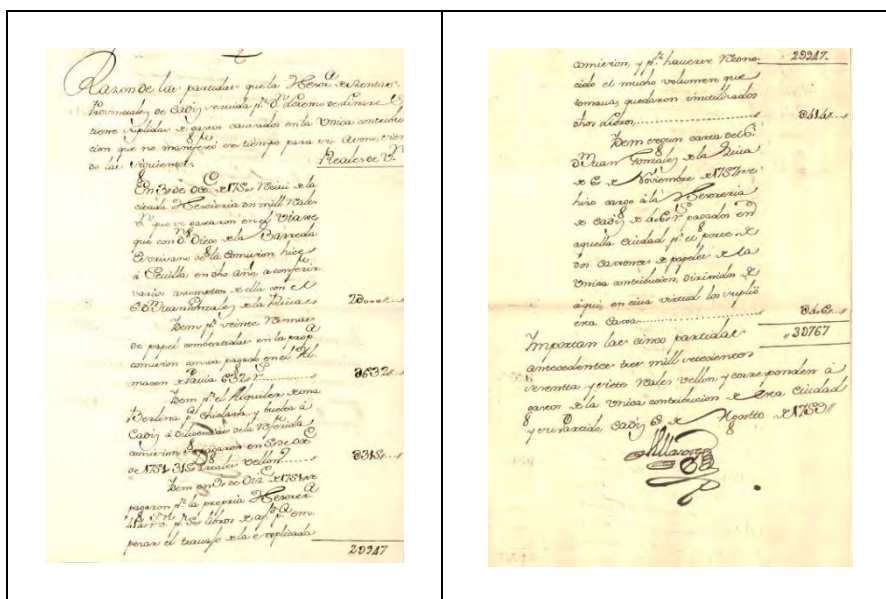 Razon de las partidas que la Thesorª de Rentas
Provinciales de Cadiz servida pr Dn Lorenzo de Linares
tiene suplidas de gastos causados en la Unica contribu
cion que no manifestó en tiempo para su abono, sien
do las siguientes. Reales de Vn
En 30 de Dre de 1750 Recivi de la
citada Thesoreria dos mill Reales
Vn que se gastaron en el Viaxe
que con Dn Diego de la Barreda
escrivano de la comision hice
à Sevilla en dho año, a conferir
varios asumptos de ella con el
Sr Dn Juan Gonzalez de la Riva 2000
Ittem pr veinte Resmas
de papel combertidas en la propª
comision con su pagado en el Al
mazen 632 0632
Ittem pr el Alquiler de una
Berlina à Chiclana y buelta à
Cadiz à diligencias de la referida
comision pagaron en
de 1751 315 reales vellon 0315
Ittem en de 1751 se
pagaron pr la propria Thesorerª
libros pª em
pezar el travajo de la explicada
20947
comision, y pr haverse Recono 20947
cido el mucho volumen que
tomava, quedaron inutilizados
dhos libros 0414
Ittem segun carta del Sr
Dn Juan Gonzalez de la Riva
de 6 de Noviembre de 1757 se
hizo cargo à la Thesoreria
de Cadiz de pagados en
aquella Ciudad pr el porte de
dos caxones de papeles de la
Unica contribucion, dirigidos de
aqui, en cuia virtud los suplio
esta Caxa
Importan las cinco partidas 30767
antecedentes tres mill setecientos
sesenta y siete Reales vellon y corresponden à
gastos de la Unica contribucion de esta Ciudad
y su Partido. Cadiz 6 de Agosto de 1759